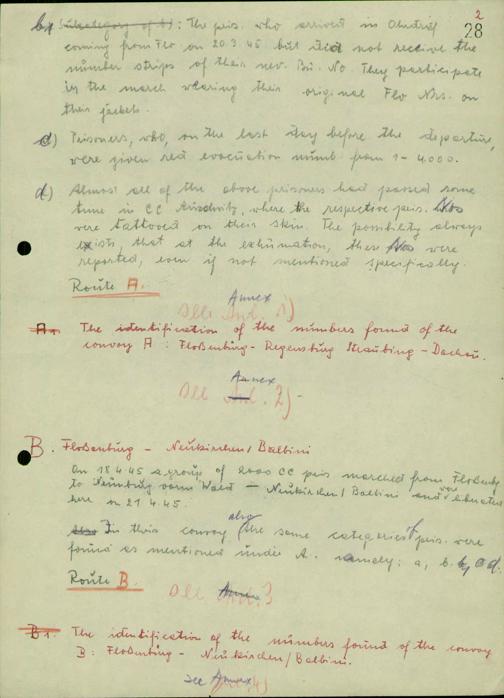 2
28
b) Subcategory of b): The pris. who arrived in Ohrdruf
coming from Flo on 20.3.45 but did not receive the
number strips of their new Bu. No. They participate
in the march wearing their original Flo Nrs. on
their jackets.
c) Prisoners, who, on the last day before the departure,
were given red evacuation numb from 1-4000.
d) Almost all of the above prisoners had passed some
time in CC Auschwitz, where the respective pris. Nos
were tattooed on their skin. The possibility always
exists, that at the exhumation, these Nos were
reported, even if not mentioned specifically.
Route A.
Annex
see 1)
A1. The identification of the numbers found of the
convoy A: Floßenburg - Regensburg Straubing - Dachau.
Annex
see 2)
B. Floßenburg - Neukirchen/Balbini
On 18.4.45 a group of 2000 CC pris marched from Floßenbg
to Neunburg vorm Wald - Neukirchen/Balbini and liberated
here on 21.4.45.
also
In this convoy the same categories of pris. were
found as mentioned under A. namely: a, b, c d.
Route B.
see Annex 3
B1. The identification of the numbers found of the convoy
B: Floßenburg - Neukirchen/Balbini.
see Annex 4)